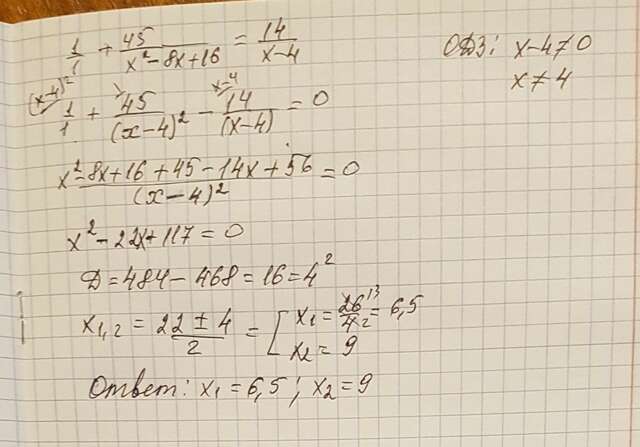 1/1 + 45/(x² - 8x + 16) = 14/(x-4)
ОДЗ: x-4≠0
x≠4
(x-4)² 1/1 + 45/(x-4)² - x-4 14/(x-4) = 0
(x² - 8x + 16 + 45 - 14x + 56)/(x-4)² = 0
x² - 22x + 117 = 0
D = 484 - 468 = 16 = 4²
x1,2 = (22 ± 4)/2 = [ x1 = 26 13/4 2 = 6,5
x2 = 9
Ответ: x1 = 6,5; x2 = 9